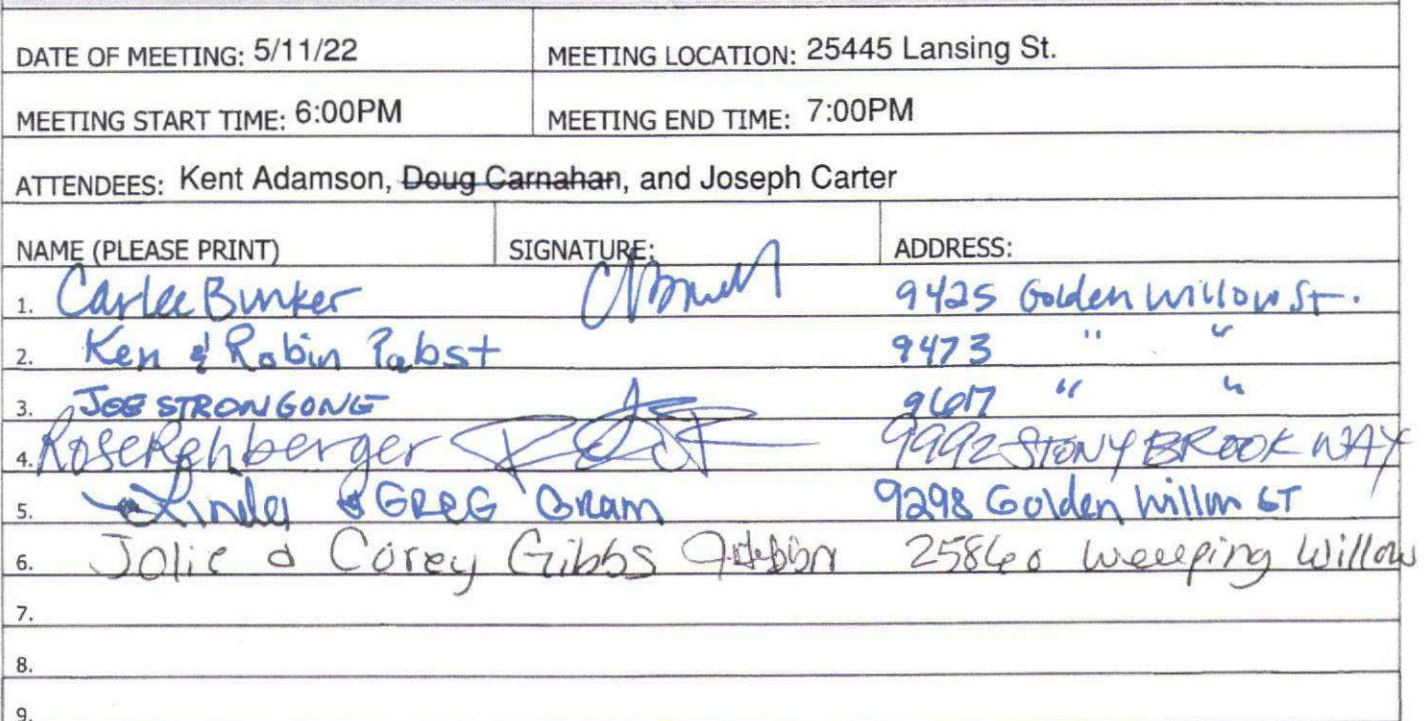 DATE OF MEETING: 5/11/22 MEETING LOCATION: 25445 Lansing St.
MEETING START TIME: 6:00PM MEETING END TIME: 7:00PM
ATTENDEES: Kent Adamson, Doug Carnahan, and Joseph Carter
NAME (PLEASE PRINT) SIGNATURE: ADDRESS:
1. Carlee Bunker 9425 Golden Willow St.
2. Ken & Robin Pabst 9473 " "
3. JOE STRONGONE 9617 " "
4. Rose Rehberger 9992 STONY BROOK WAY
5. Linda & GREG Gram 9298 Golden Willow ST
6. Jolie & Corey Gibbs 25860 Weeping Willow
7.
8.
9.